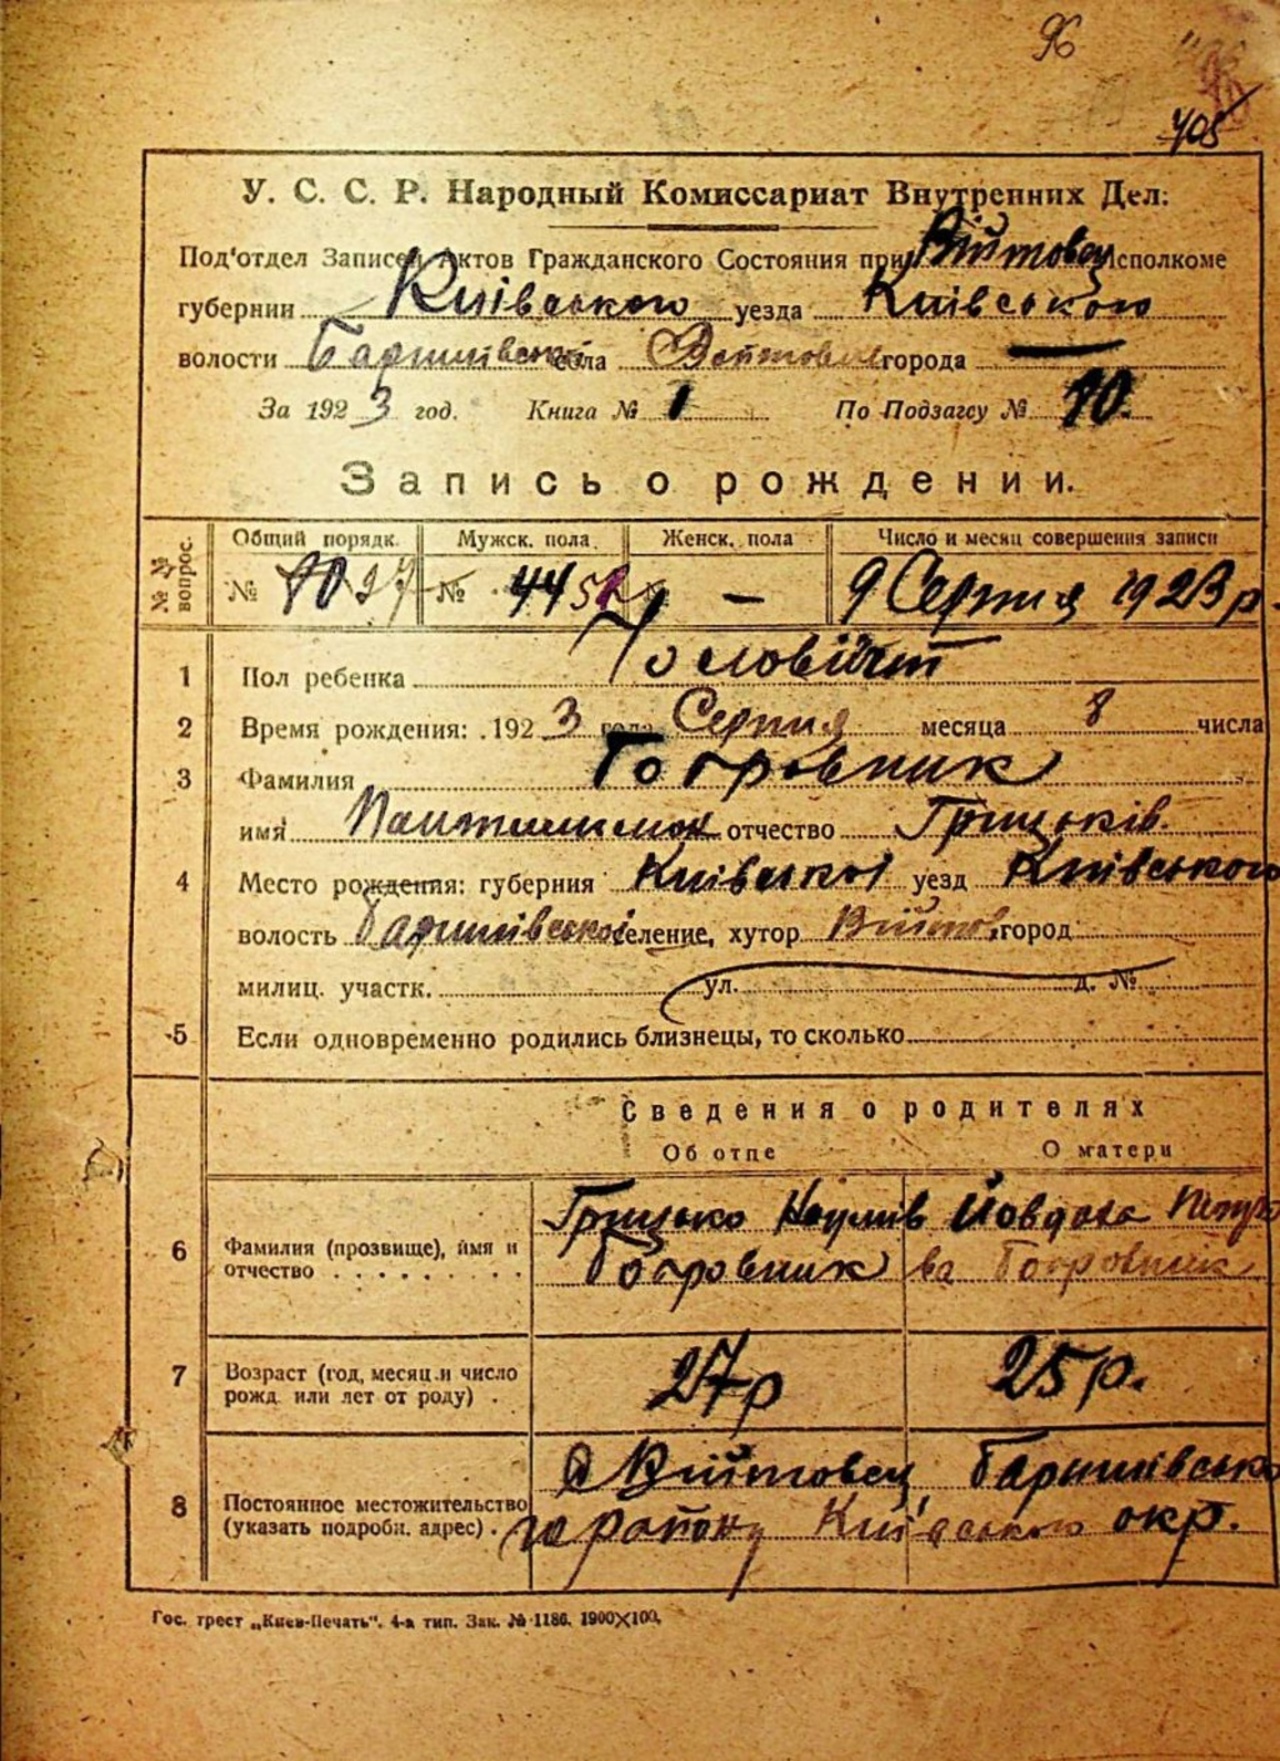 96
405
У. С. С. Р. Народный Комиссариат Внутренних Дел:
Под'отдел Записей Актов Гражданского Состояния при Війтовец Исполкоме
губернии Київського уезда Київського
волости Баришівської села Войтовец города —
За 1923 год. Книга № 1 По Подзагсу № 10.
Запись о рождении.
№№ вопрос. Общий порядк. Мужск. пола Женск. пола Число и месяц совершения записи
№ 10 27 № 44 № — 9 Серпня 1923 р.
1 Пол ребенка Чоловічт
2 Время рождения: 1923 года Серпня месяца 8 числа
3 Фамилия Гогровник
имя отчество Грицьків.
4 Место рождения: губерния Київської уезд Київського
волость Баришівської селение, хутор Війтов город
милиц. участк. ул. д. №
5 Если одновременно родились близнецы, то сколько
Сведения о родителях
Об отце О матери
6 Фамилия (прозвище), имя и Грицько Наумів Йовдоха
отчество Гогровник ва Гогровник
7 Возраст (год, месяц и число 27 р 25 р.
рожд. или лет от роду)
8 Постоянное местожительство Війтовец Баришівсько
(указать подробн. адрес) го району Київського окр.
Гос. трест „Киев-Печать". 4-а тип. Зак. № 1186. 1900×100.